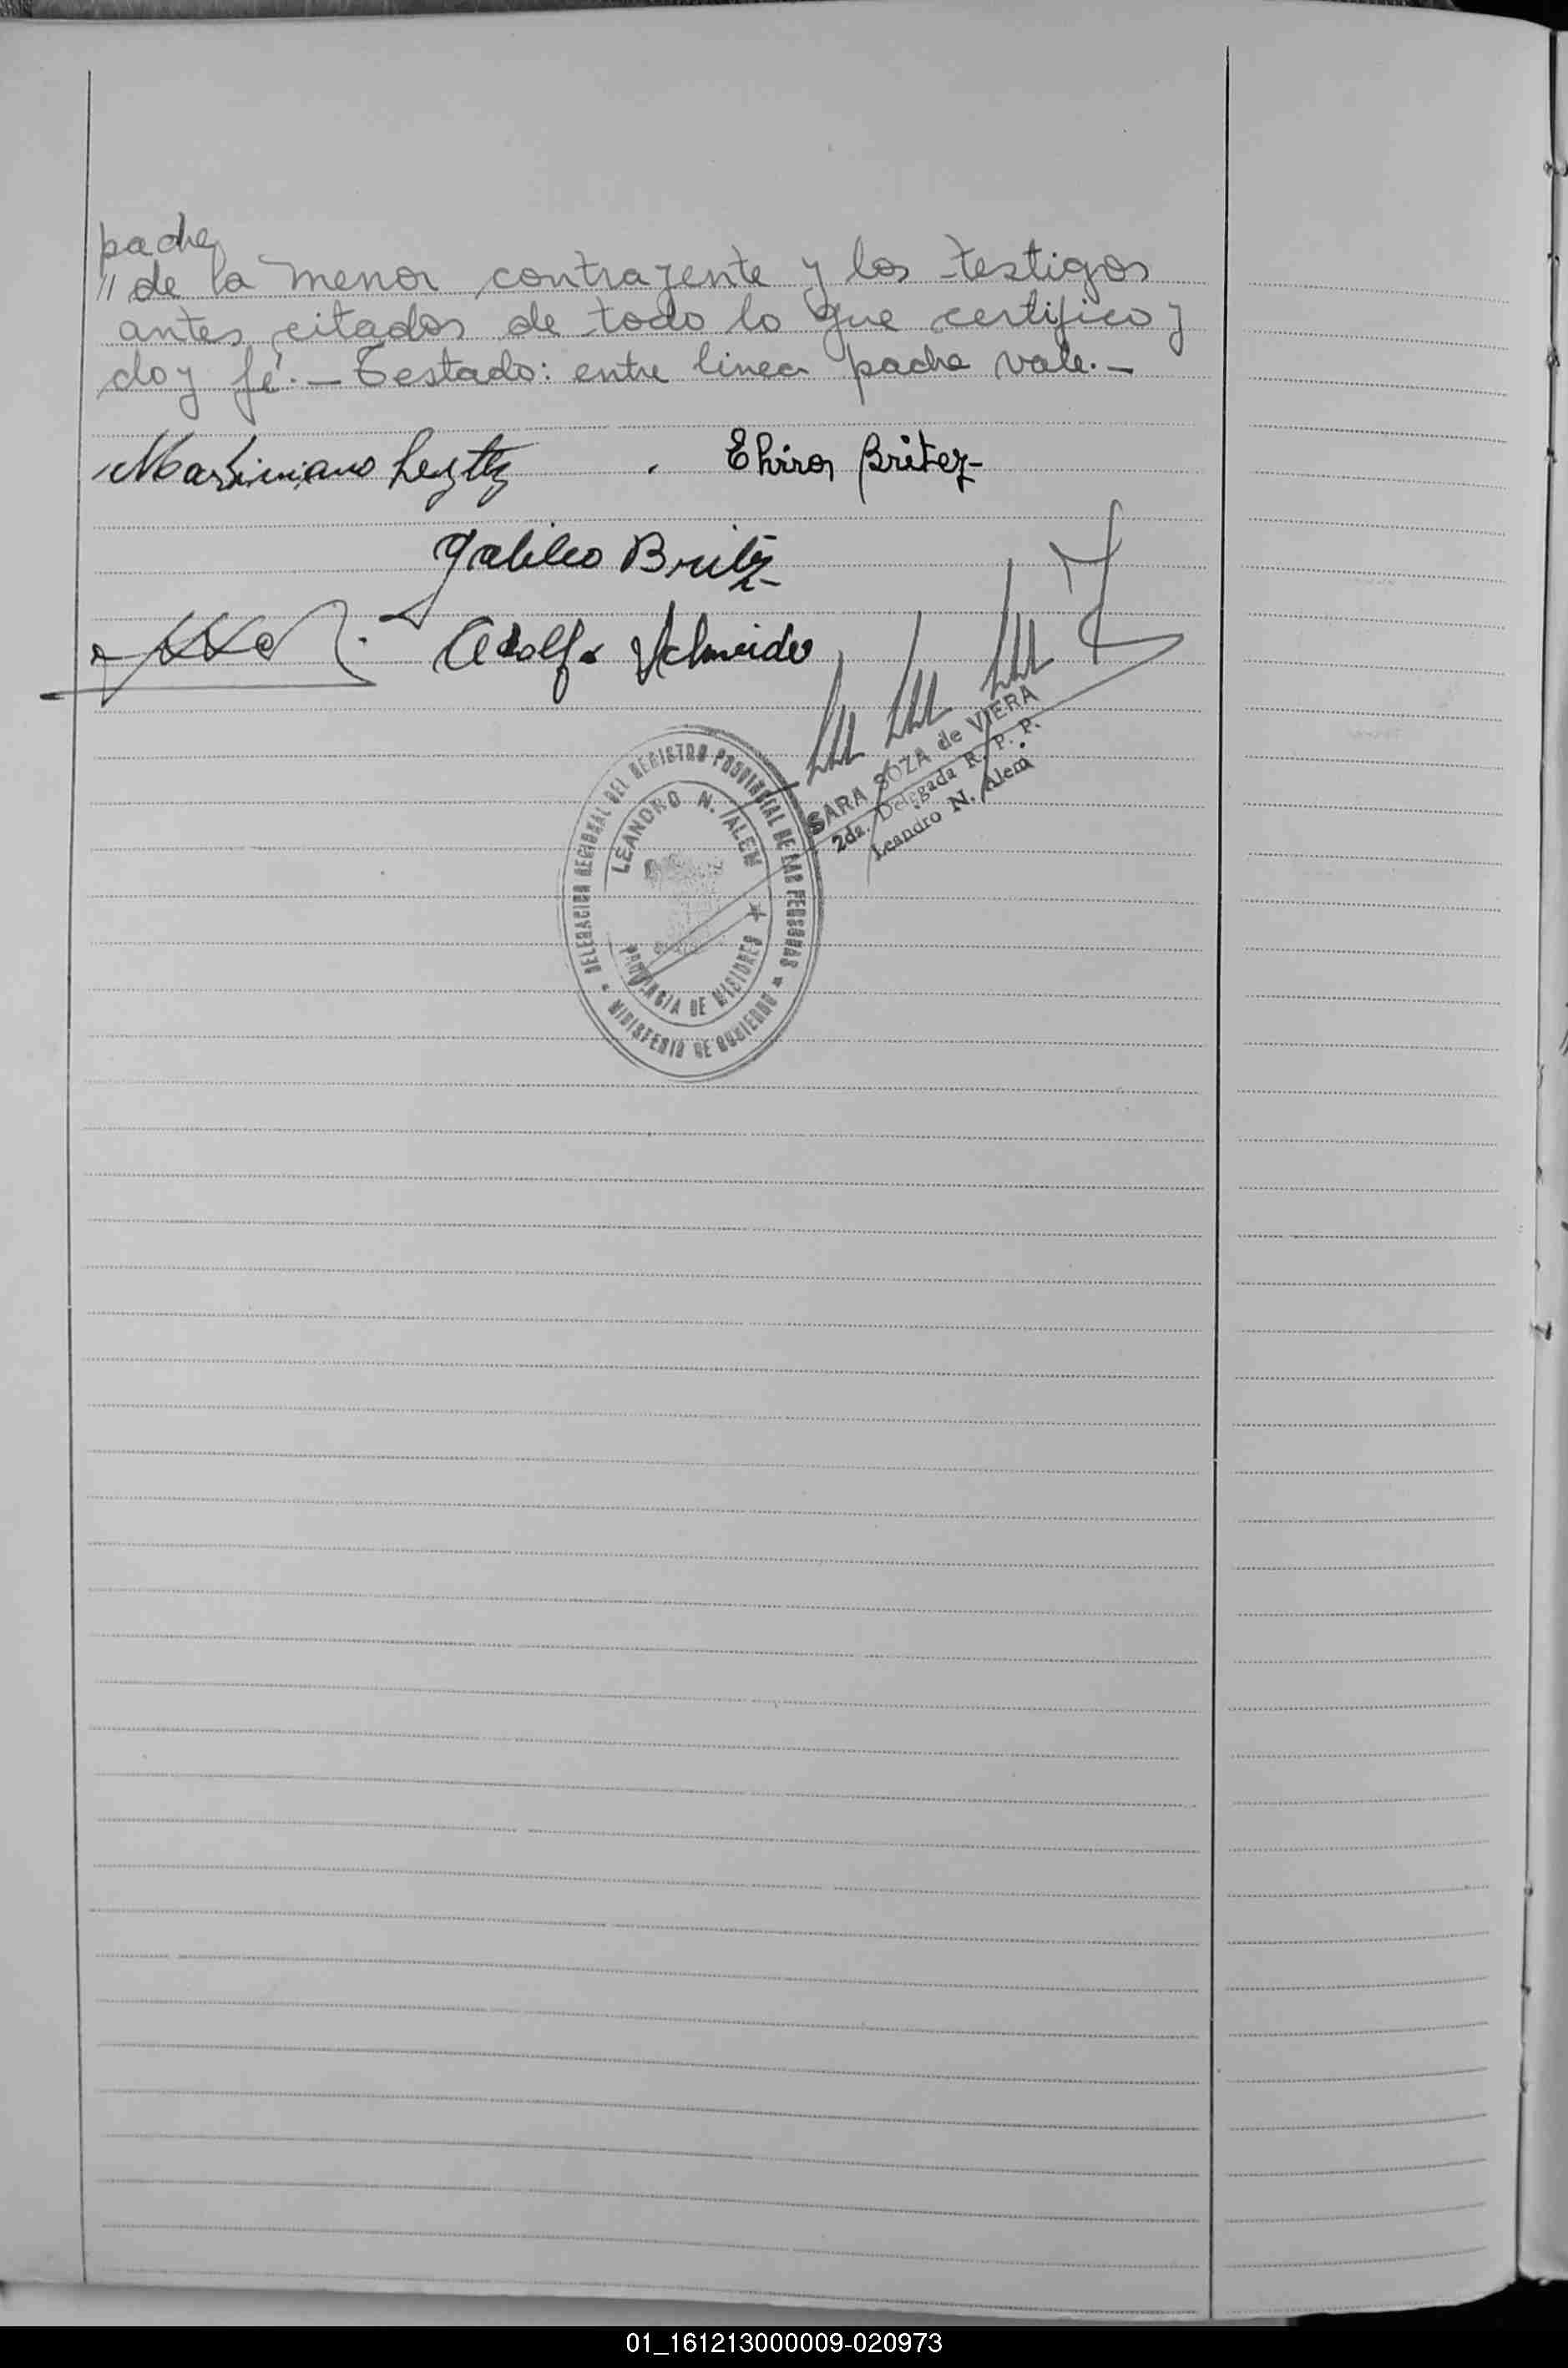 padre
" de la menor contrayente y los testigos
antes citados de todo lo que certifico y
doy fé.— Testado: entre linea padre vale.—
Britez
Galileo Britez
Adolfo Schneider
SARA SOZA de VIERA
2da. Delegada R. P. P.
Leandro N. Alem
DELEGACION REGIONAL DEL REGISTRO PROVINCIAL DE LAS PERSONAS
MINISTERIO DE GOBIERNO
LEANDRO N. ALEM
PROVINCIA DE MISIONES
01_161213000009-020973